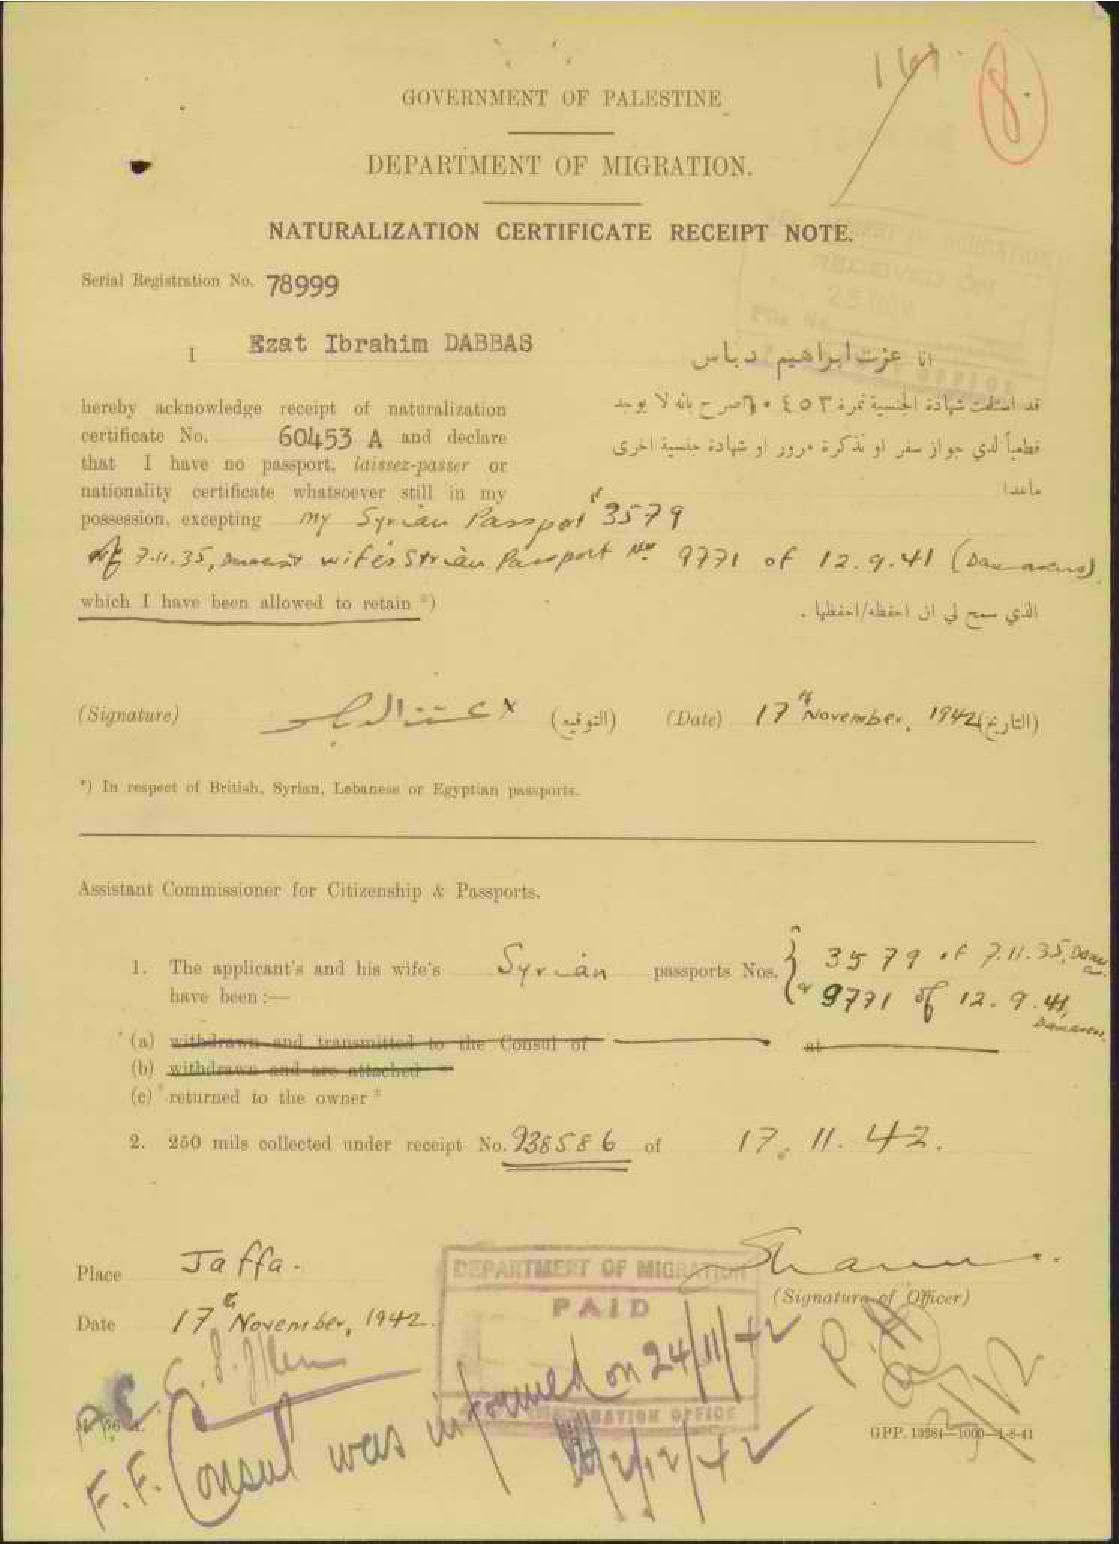 8.
GOVERNMENT OF PALESTINE
DEPARTMENT OF MIGRATION.
NATURALIZATION CERTIFICATE RECEIPT NOTE.
RECEIVED ON
Serial Registration No. 78999
I Ezat Ibrahim DABBAS
انا عزت ابراهيم دباس
hereby acknowledge receipt of naturalization
certificate No. 60453 A and declare
that I have no passport, laissez-passer or
nationality certificate whatsoever still in my
possession, excepting my Syrian Passport 3579
قد استلمت شهادة الجنسية نمرة ٦٠٤٥٣ اصرح بانه لا يوجد
قطعياً لدي جواز سفر او تذكرة مرور او شهادة جنسية اخرى
ماعدا
of 7.11.35, wife's Strian Passport No 9771 of 12.9.41 (Damascus)
which I have been allowed to retain *)
الذي سمح لي ان احفظه/احفظها .
(Signature) (التوقيع) (Date) 17th November, 1942 (التاريخ)
*) In respect of British, Syrian, Lebanese or Egyptian passports.
Assistant Commissioner for Citizenship & Passports.
1. The applicant's and his wife's Syrian passports Nos. 3579 of 7.11.35,
have been :— 9771 of 12.9.41, Damascus
(a) withdrawn and transmitted to the Consul of at
(b) withdrawn and are attached
(c) returned to the owner *
2. 250 mils collected under receipt No. 938586 of 17.11.42.
Place Jaffa.
Date 17th November, 1942.
(Signature of Officer)
DEPARTMENT OF MIGRATION
PAID
F.F. Consul was informed on 24/11/42
2/12/42
GPP. 10984—1000—1-8-41